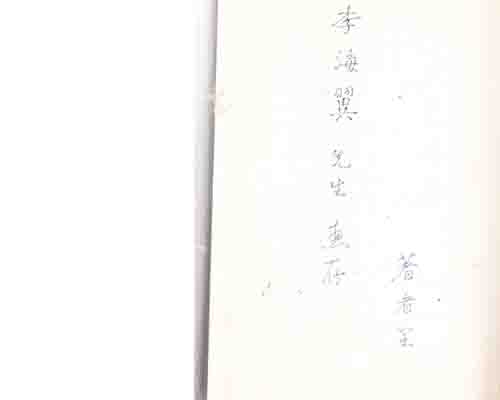 李海翼先生惠存
著者呈